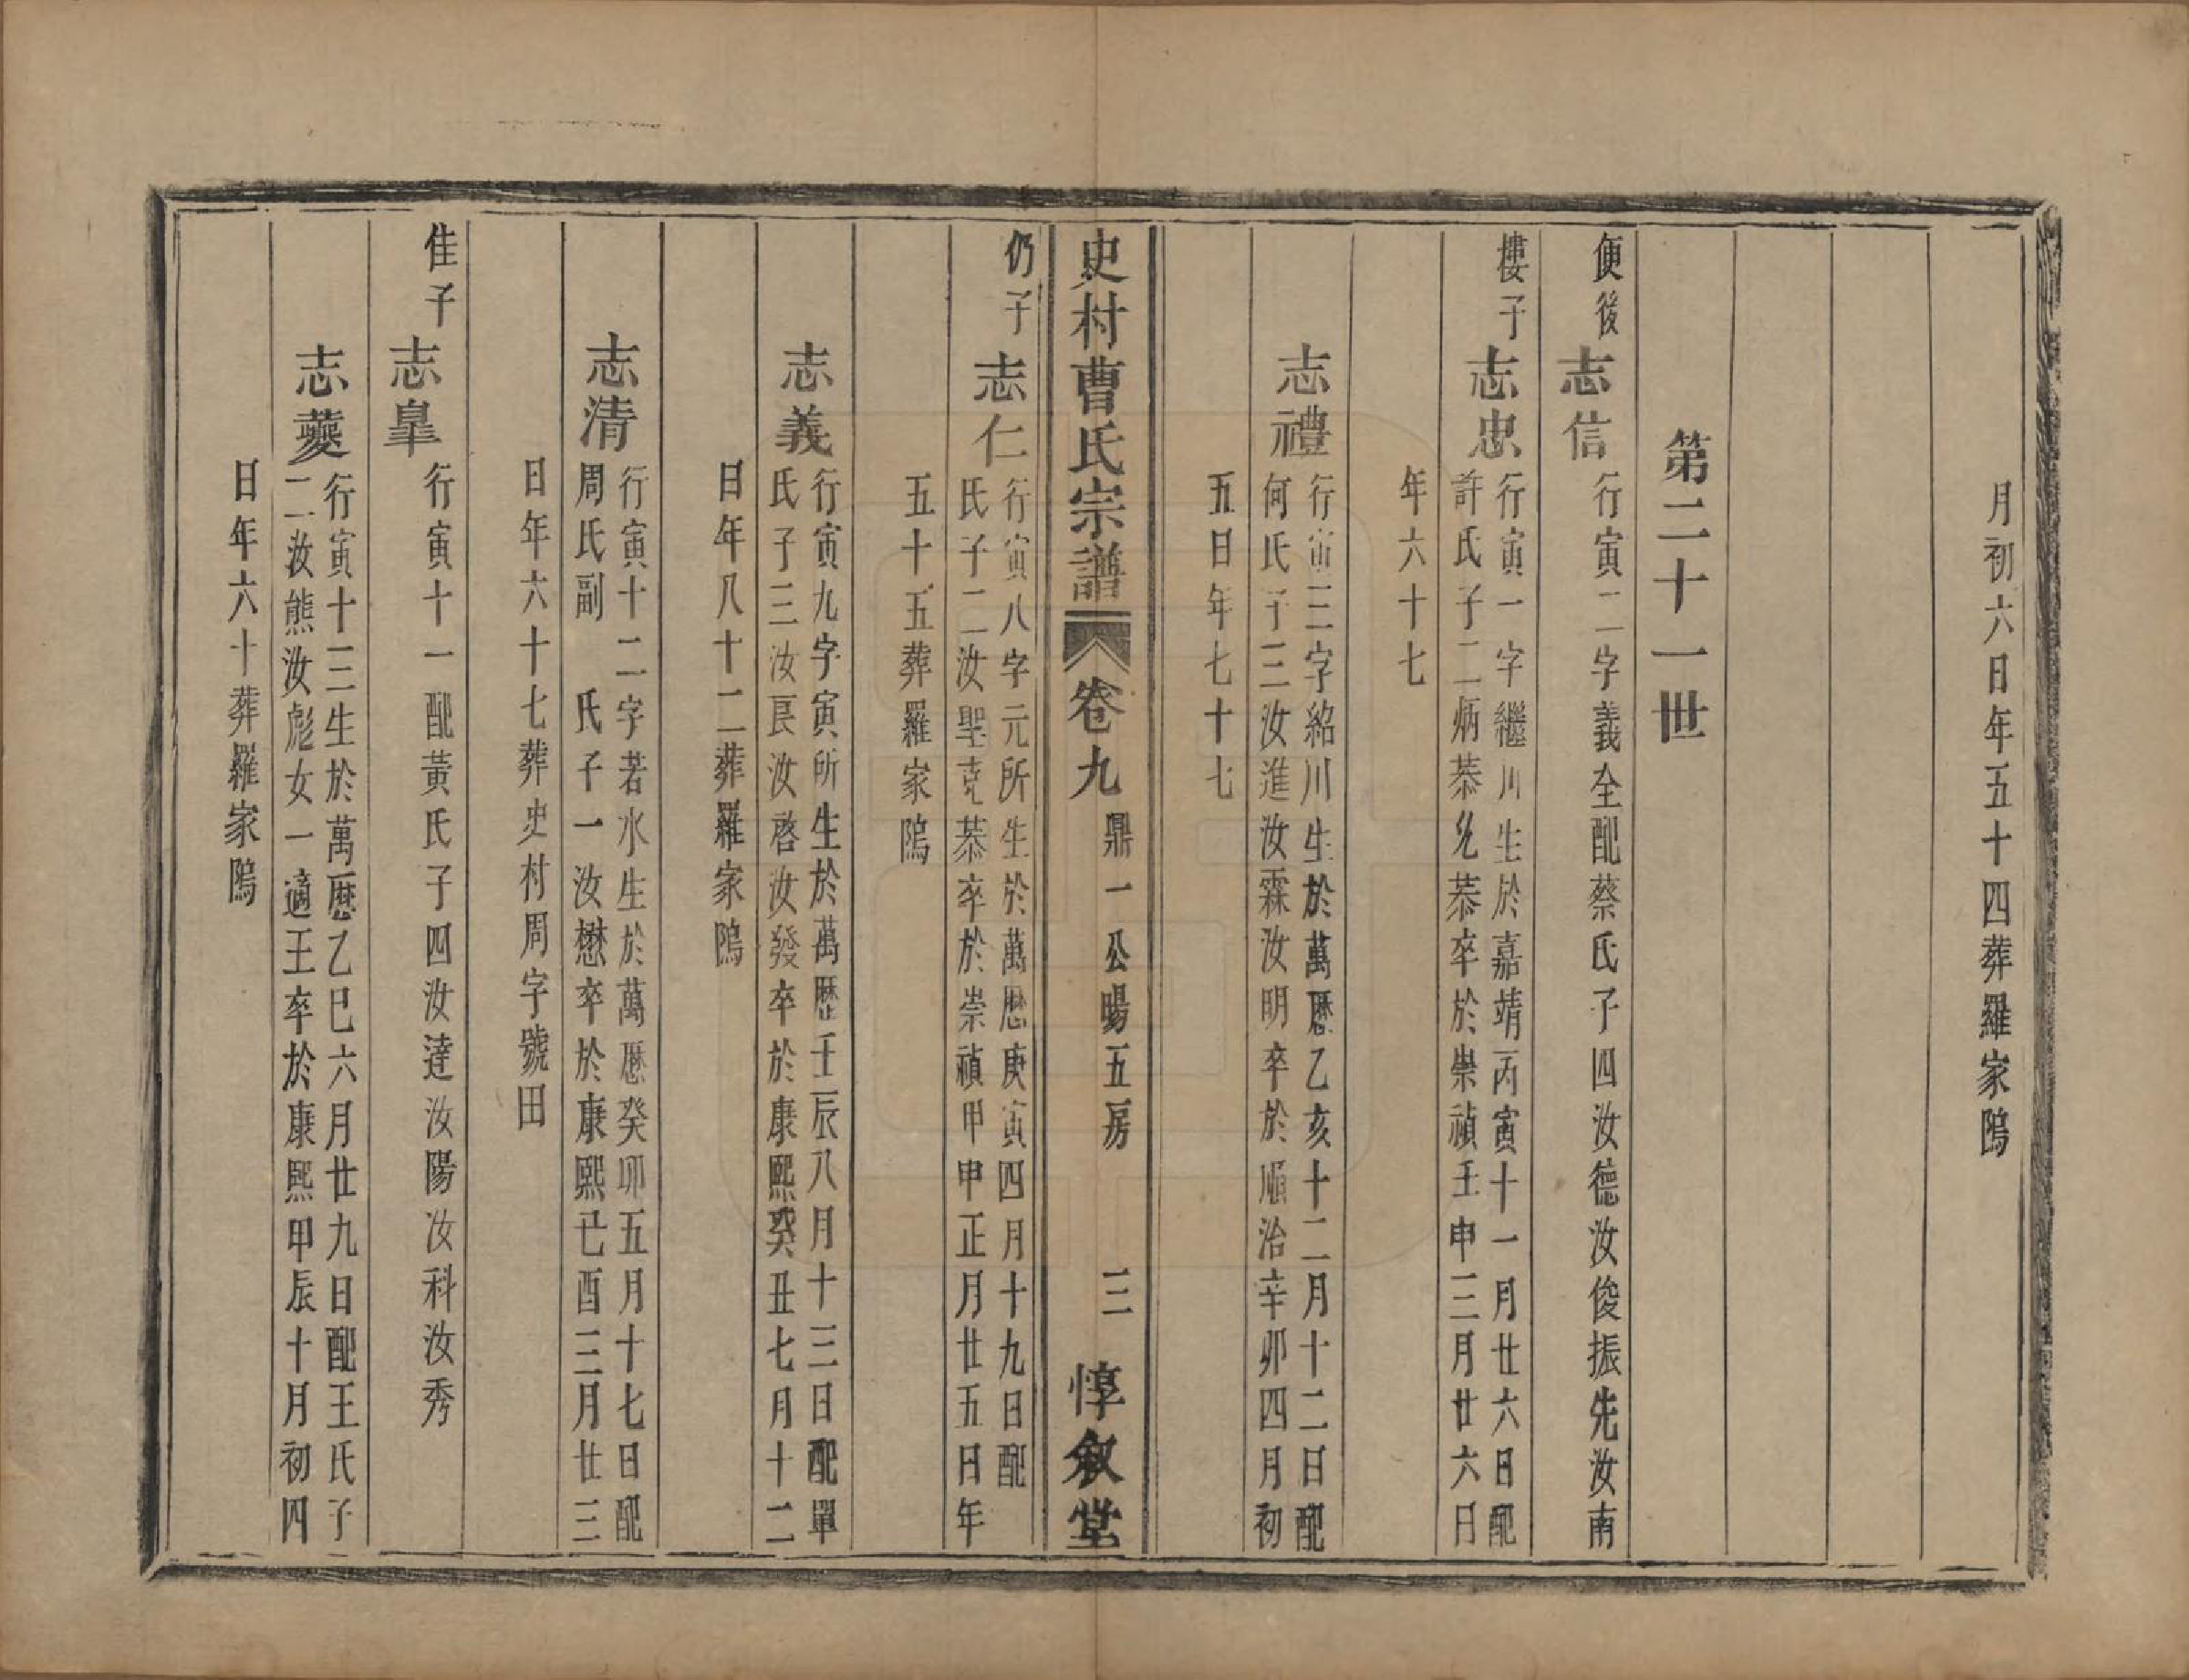 月初六日年五十四葬羅家隖
第二十一世
便後
志信
行寅二字義全配蔡氏子四汝德汝俊振先汝南
樓子
志忠
行寅一字繼川生於嘉靖丙寅十一月廿六日配
許氏子二炳恭允恭卒於崇禎壬申三月廿六日
年六十七
志禮
行寅三字紹川生於萬曆乙亥十二月十二日配
何氏子三汝進汝霖汝明卒於順治辛卯四月初
五日年七十七
史村曹氏宗譜 卷九 鼎一公暘五房 三 惇敘堂
仍子
志仁
行寅八字元所生於萬曆庚寅四月十九日配
氏子二汝聖克恭卒於崇禎甲申正月廿五日年
五十五葬羅家隖
志義
行寅九字寅所生於萬曆壬辰八月十三日配單
氏子三汝良汝啓汝發卒於康熙癸丑七月十二
日年八十二葬羅家隖
志清
行寅十二字若水生於萬曆癸卯五月十七日配
周氏副 氏子一汝懋卒於康熙已酉三月廿三
日年六十七葬史村周字號田
佳子
志皐
行寅十一配黃氏子四汝達汝陽汝科汝秀
志夔
行寅十三生於萬曆乙巳六月廿九日配王氏子
二汝熊汝彪女一適王卒於康熙甲辰十月初四
日年六十葬羅家隖